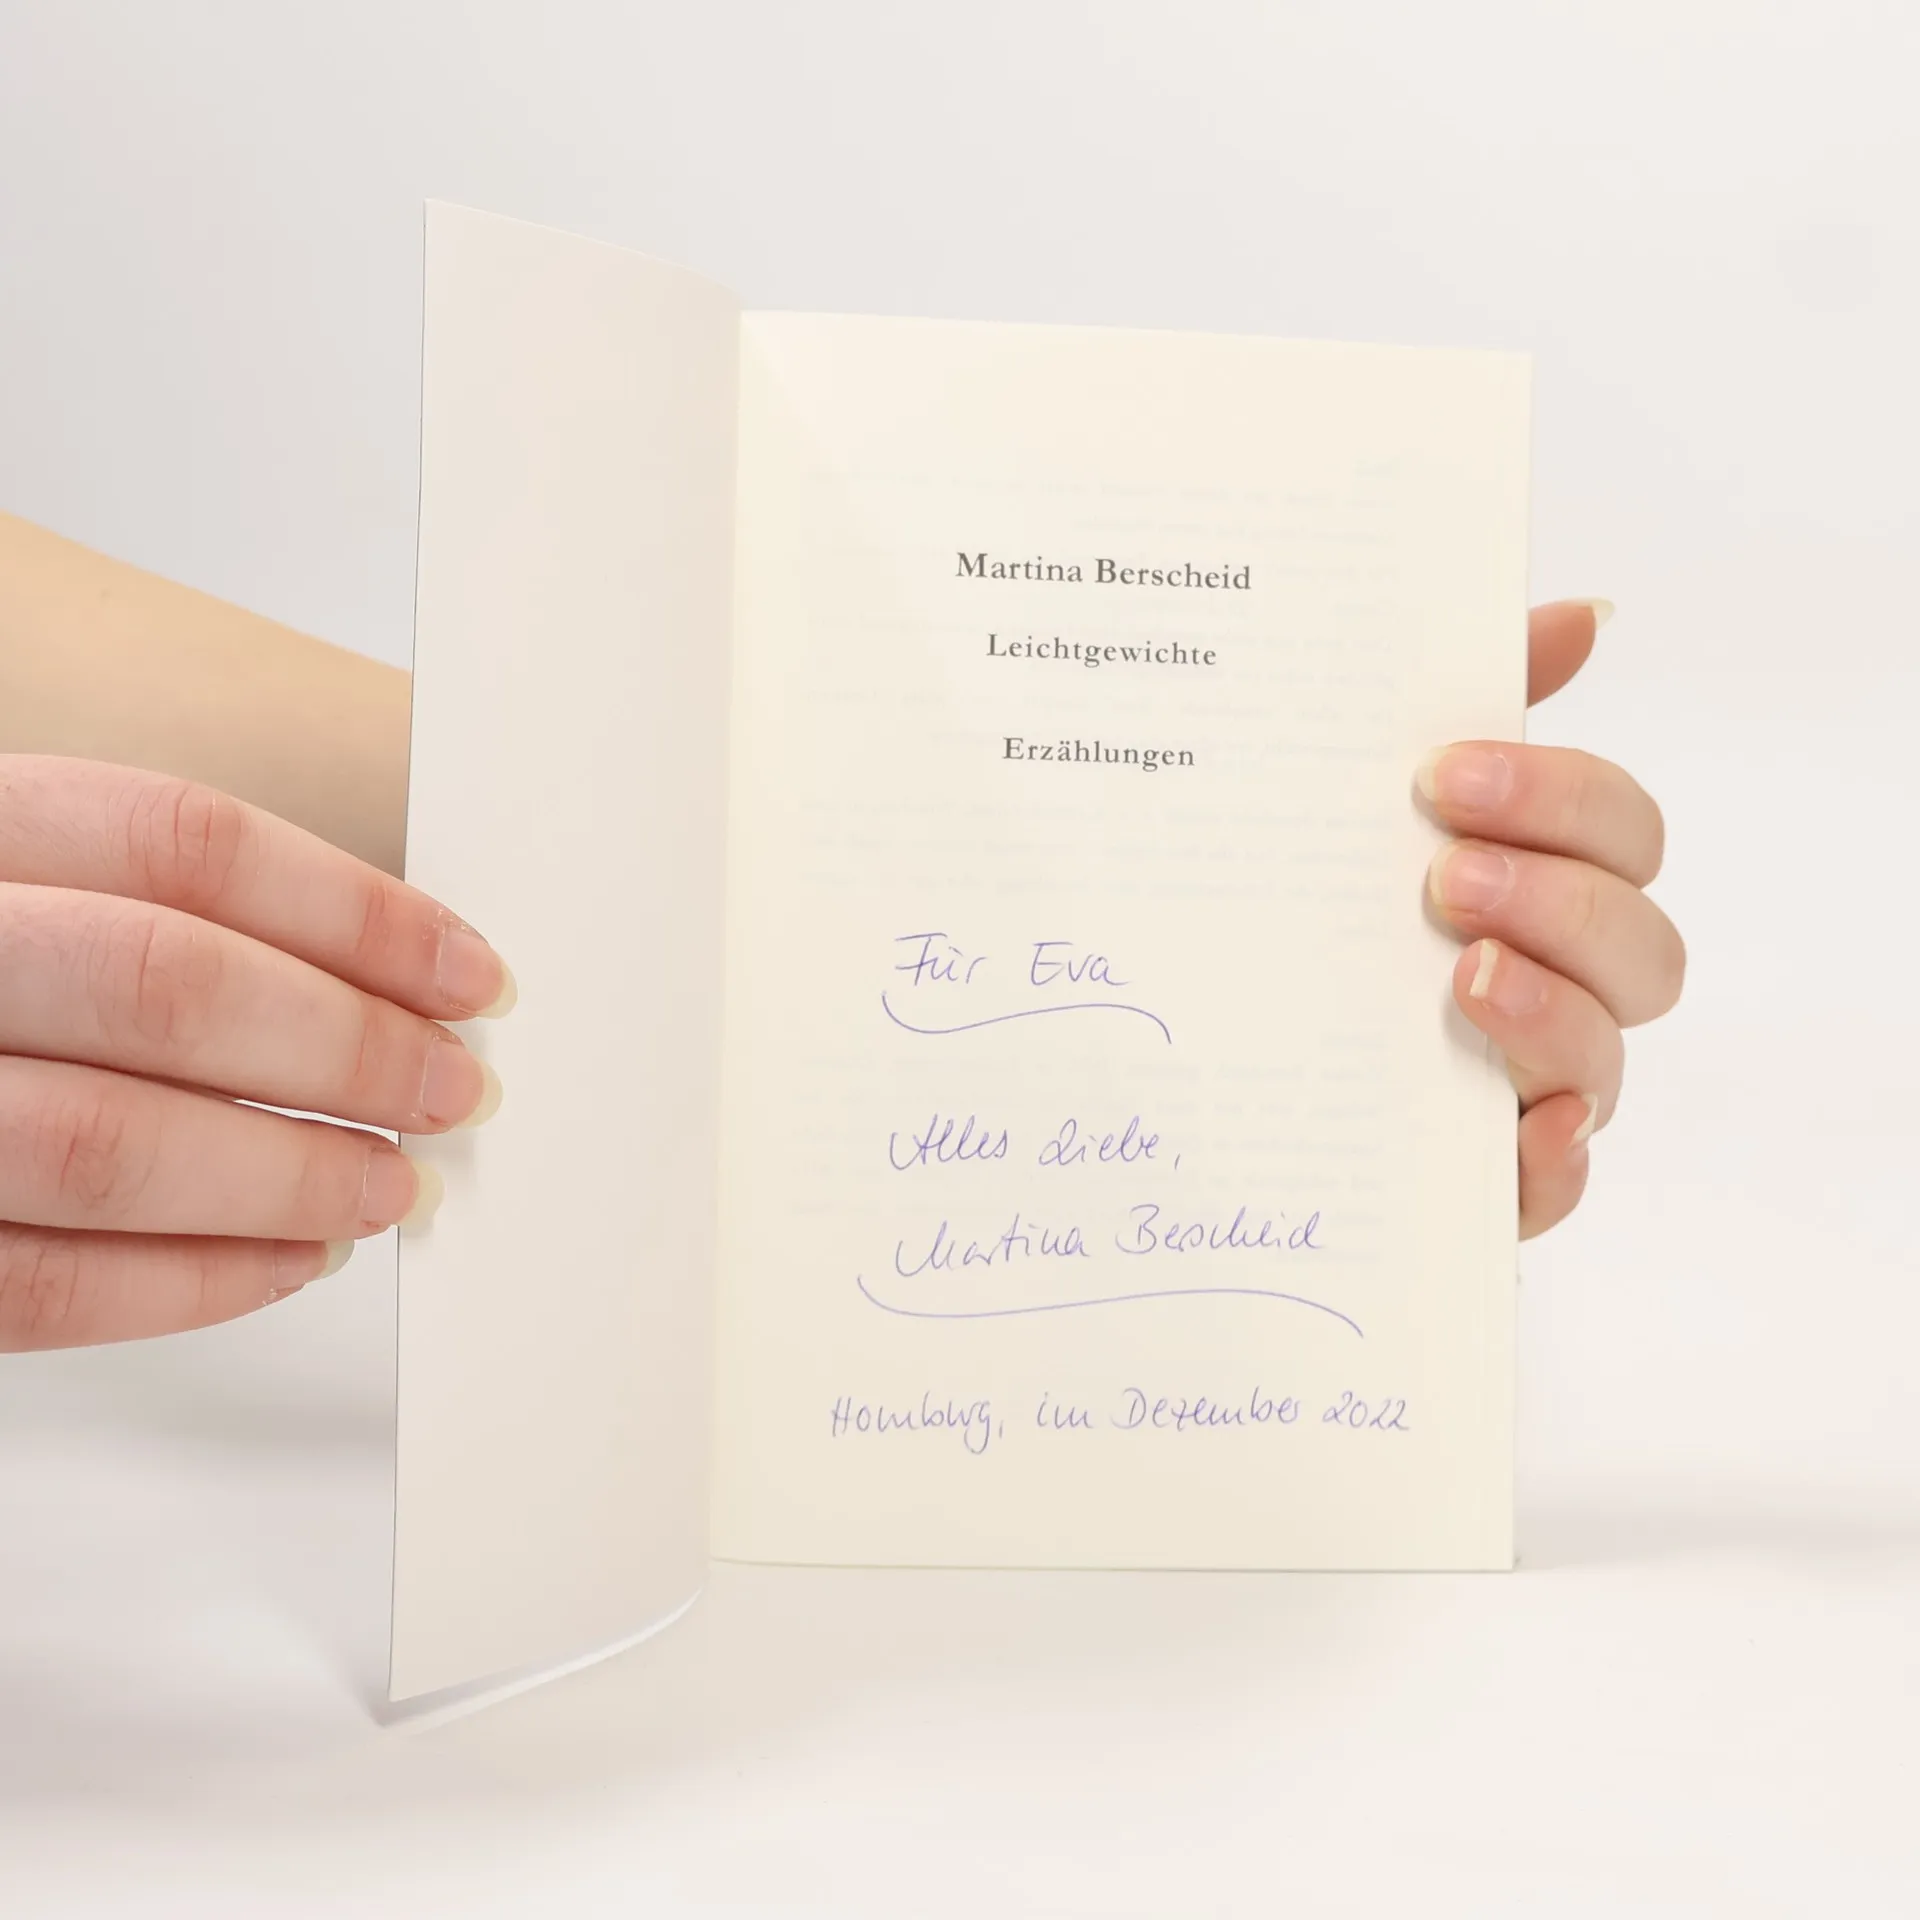 Martina Berscheid
Leichtgewichte
Erzählungen
Für Eva
Alles Liebe,
Martina Berscheid
Homburg, im Dezember 2022